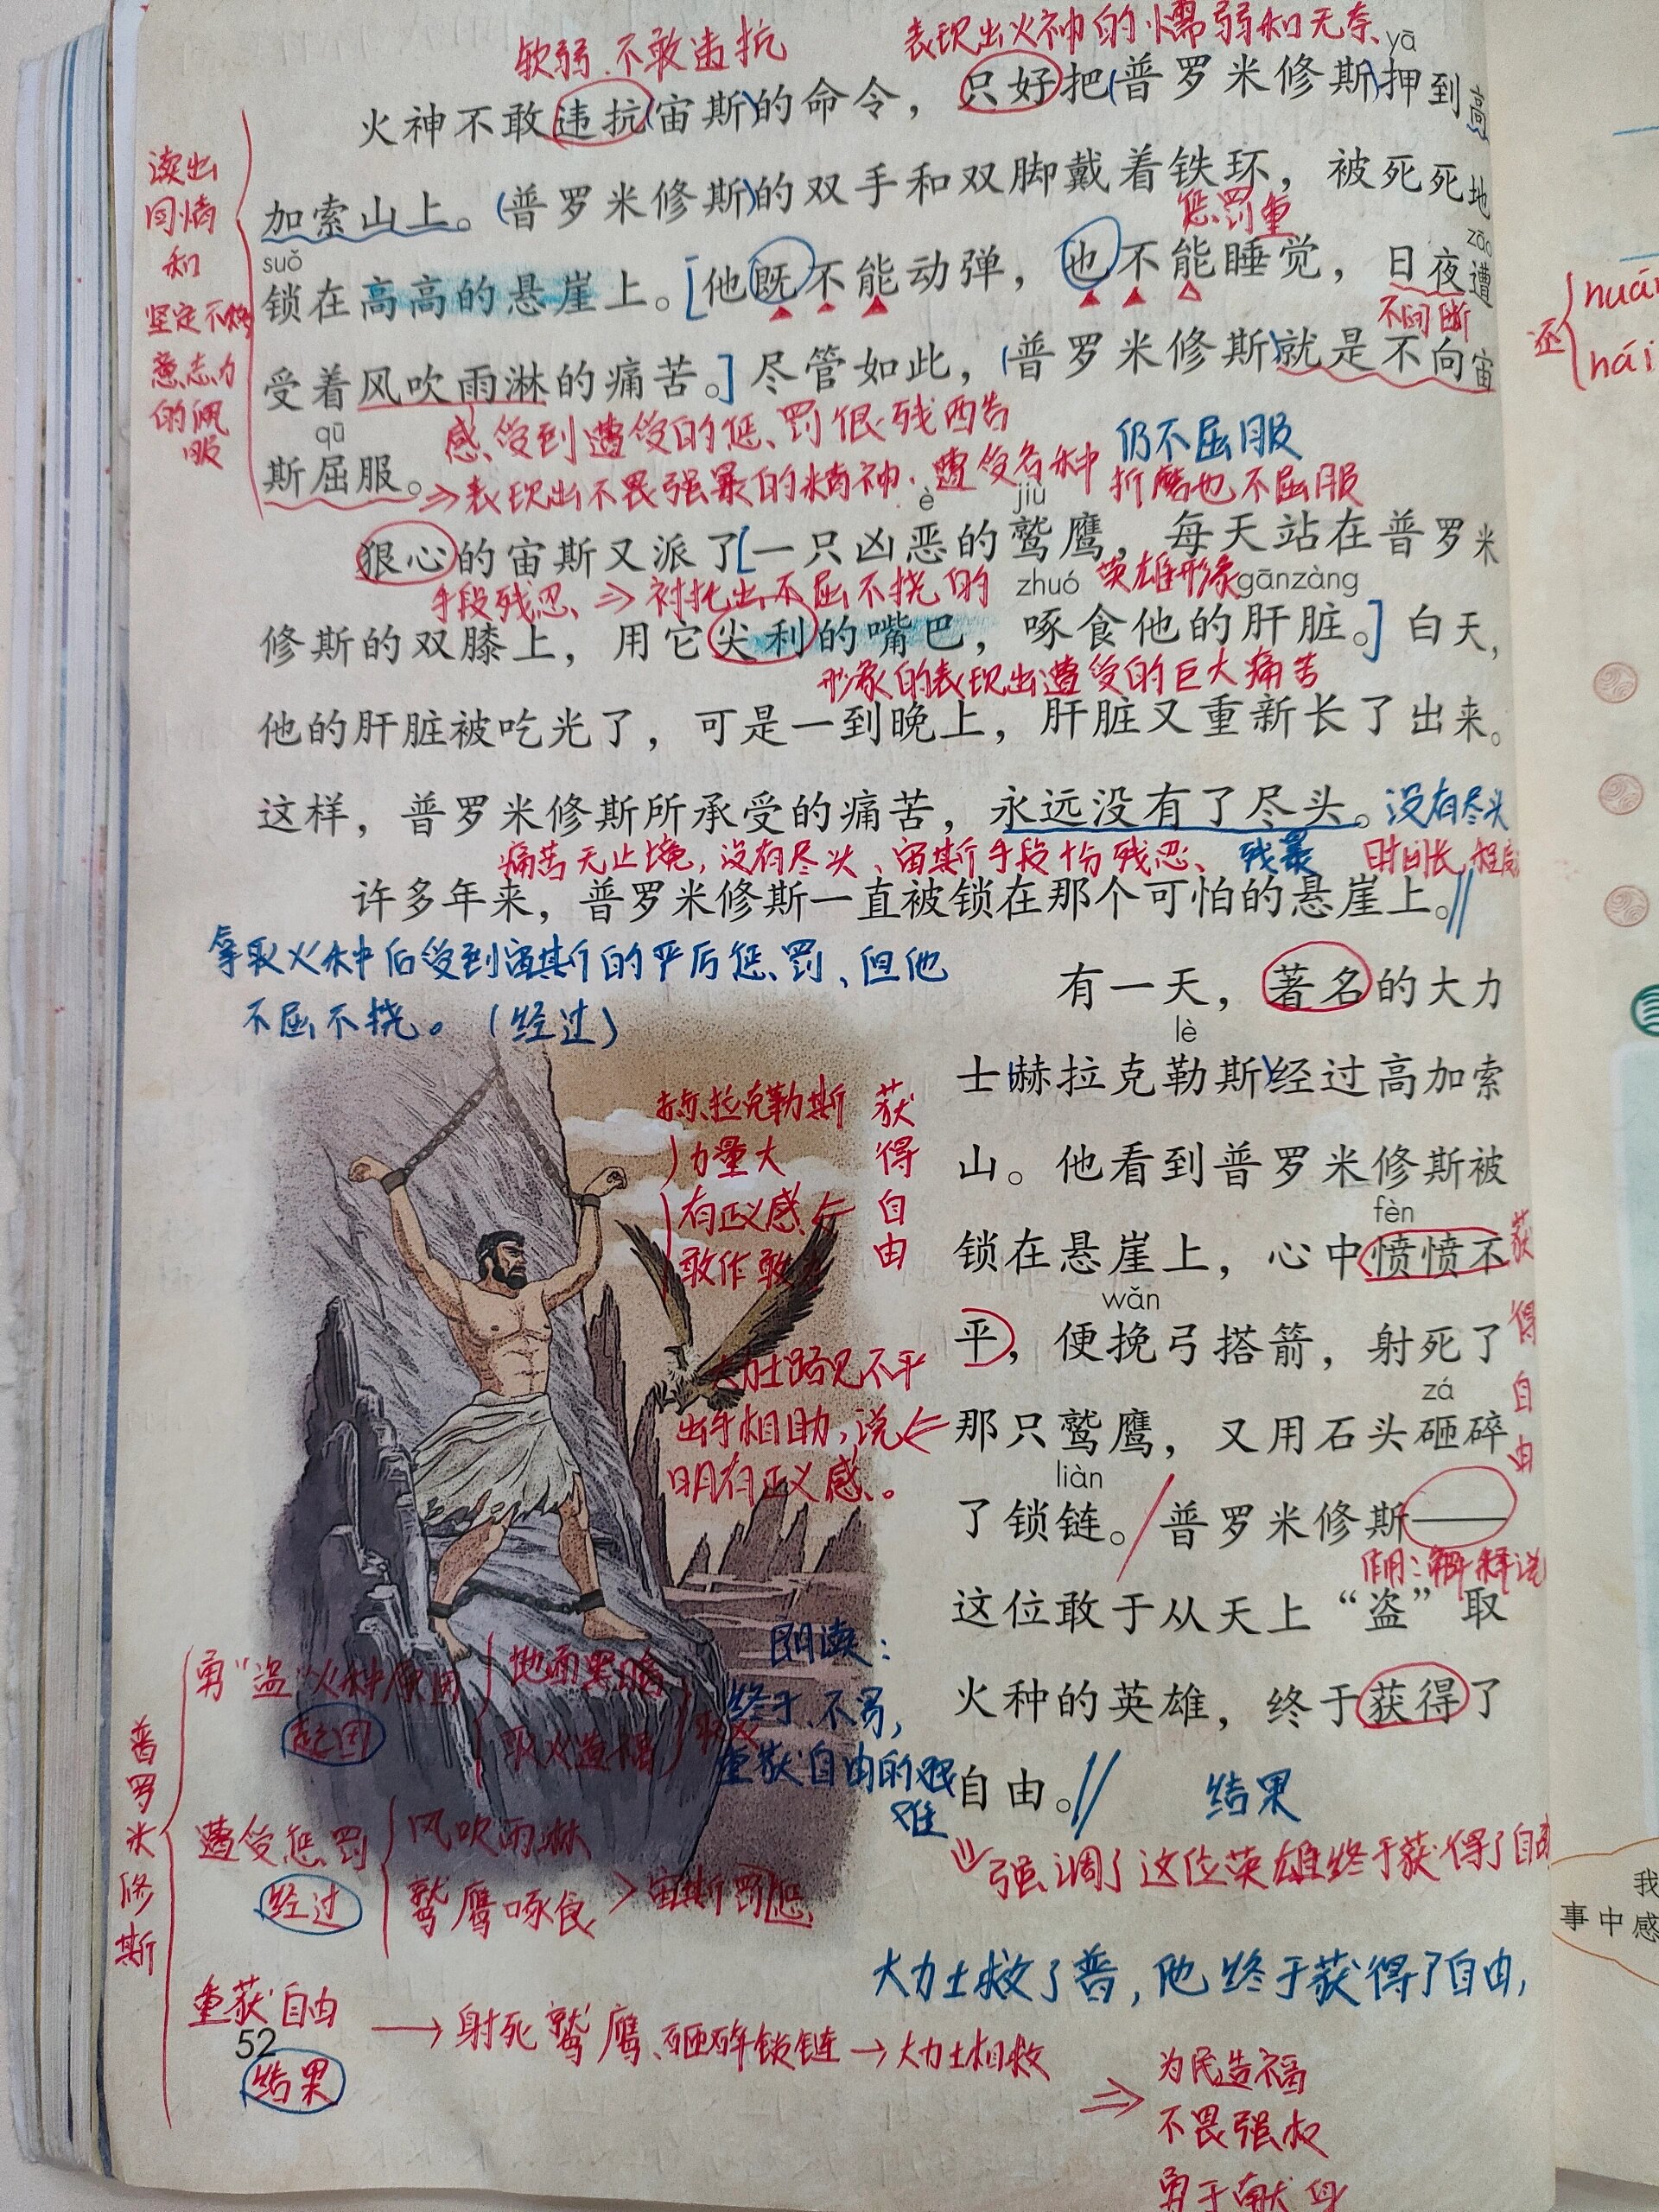 软弱、不敢违抗
表现出火神的懦弱和无奈
yā
火神不敢违抗(宙斯)的命令，只好把(普罗米修斯)押到高
加索山上。(普罗米修斯)的双手和双脚戴着铁环，被死死地
惩罚重
suǒ
zāo
锁在高高的悬崖上。[他既不能动弹，也不能睡觉，日夜遭
不间断
受着风吹雨淋的痛苦。]尽管如此，(普罗米修斯)就是不向宙
qū
感受到遭受的惩罚很残酷
仍不屈服
斯屈服。
⇒表现出不畏强暴的精神。遭受各种折磨也不屈服
读出
同情
和
坚定不
意志力
的佩
服
è
jiù
狠心的宙斯又派了[一只凶恶的鹫鹰，每天站在普罗米
手段残忍、⇒衬托出不屈不挠的英雄形象
zhuó
gānzàng
修斯的双膝上，用它尖利的嘴巴，啄食他的肝脏。]白天，
形象的表现出遭受的巨大痛苦
他的肝脏被吃光了，可是一到晚上，肝脏又重新长了出来。
这样，普罗米修斯所承受的痛苦，永远没有了尽头。
没有尽头
痛苦无止境，没有尽头、宙斯手段十分残忍、残暴
时间长，程度
许多年来，普罗米修斯一直被锁在那个可怕的悬崖上。//
拿取火种后受到宙斯的严厉惩罚、但他
不屈不挠。（经过）
有一天，著名的大力
lè
士(赫拉克勒斯)经过高加索
山。他看到普罗米修斯被
fèn
锁在悬崖上，心中愤愤不
wǎn
平，便挽弓搭箭，射死了
zá
那只鹫鹰，又用石头砸碎
liàn
了锁链。/普罗米修斯——
作用：解释说
这位敢于从天上“盗”取
火种的英雄，终于获得了
自由。//
结果
强调了这位英雄终于获得了自由
赫拉克勒斯
力量大
有正义感⇐
敢作敢
获
得
自
由
获
得
自
由
大力士路见不平
出手相助，说⇐
明有正义感。
朗读：
终于、不易，
重获自由的艰
难
普
罗
米
修
斯
勇“盗”火种原因
起因
地面黑暗
取火造福
遭受惩罚
经过
风吹雨淋
鹫鹰啄食
>宙斯罚惩
重获自由
52
结果
→射死鹫鹰、砸碎锁链→大力士相救
大力士救了普，他终于获得了自由，
⇒为民造福
不畏强权
勇于献身
还
nuá
hái
我
事中感